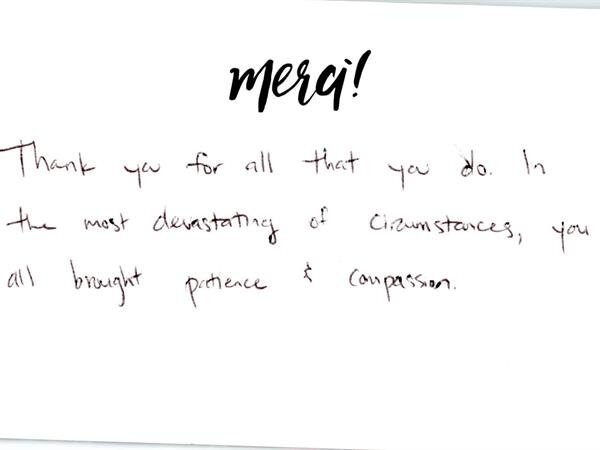 merci!
Thank you for all that you do. In
the most devastating of circumstances, you
all brought patience & compassion.